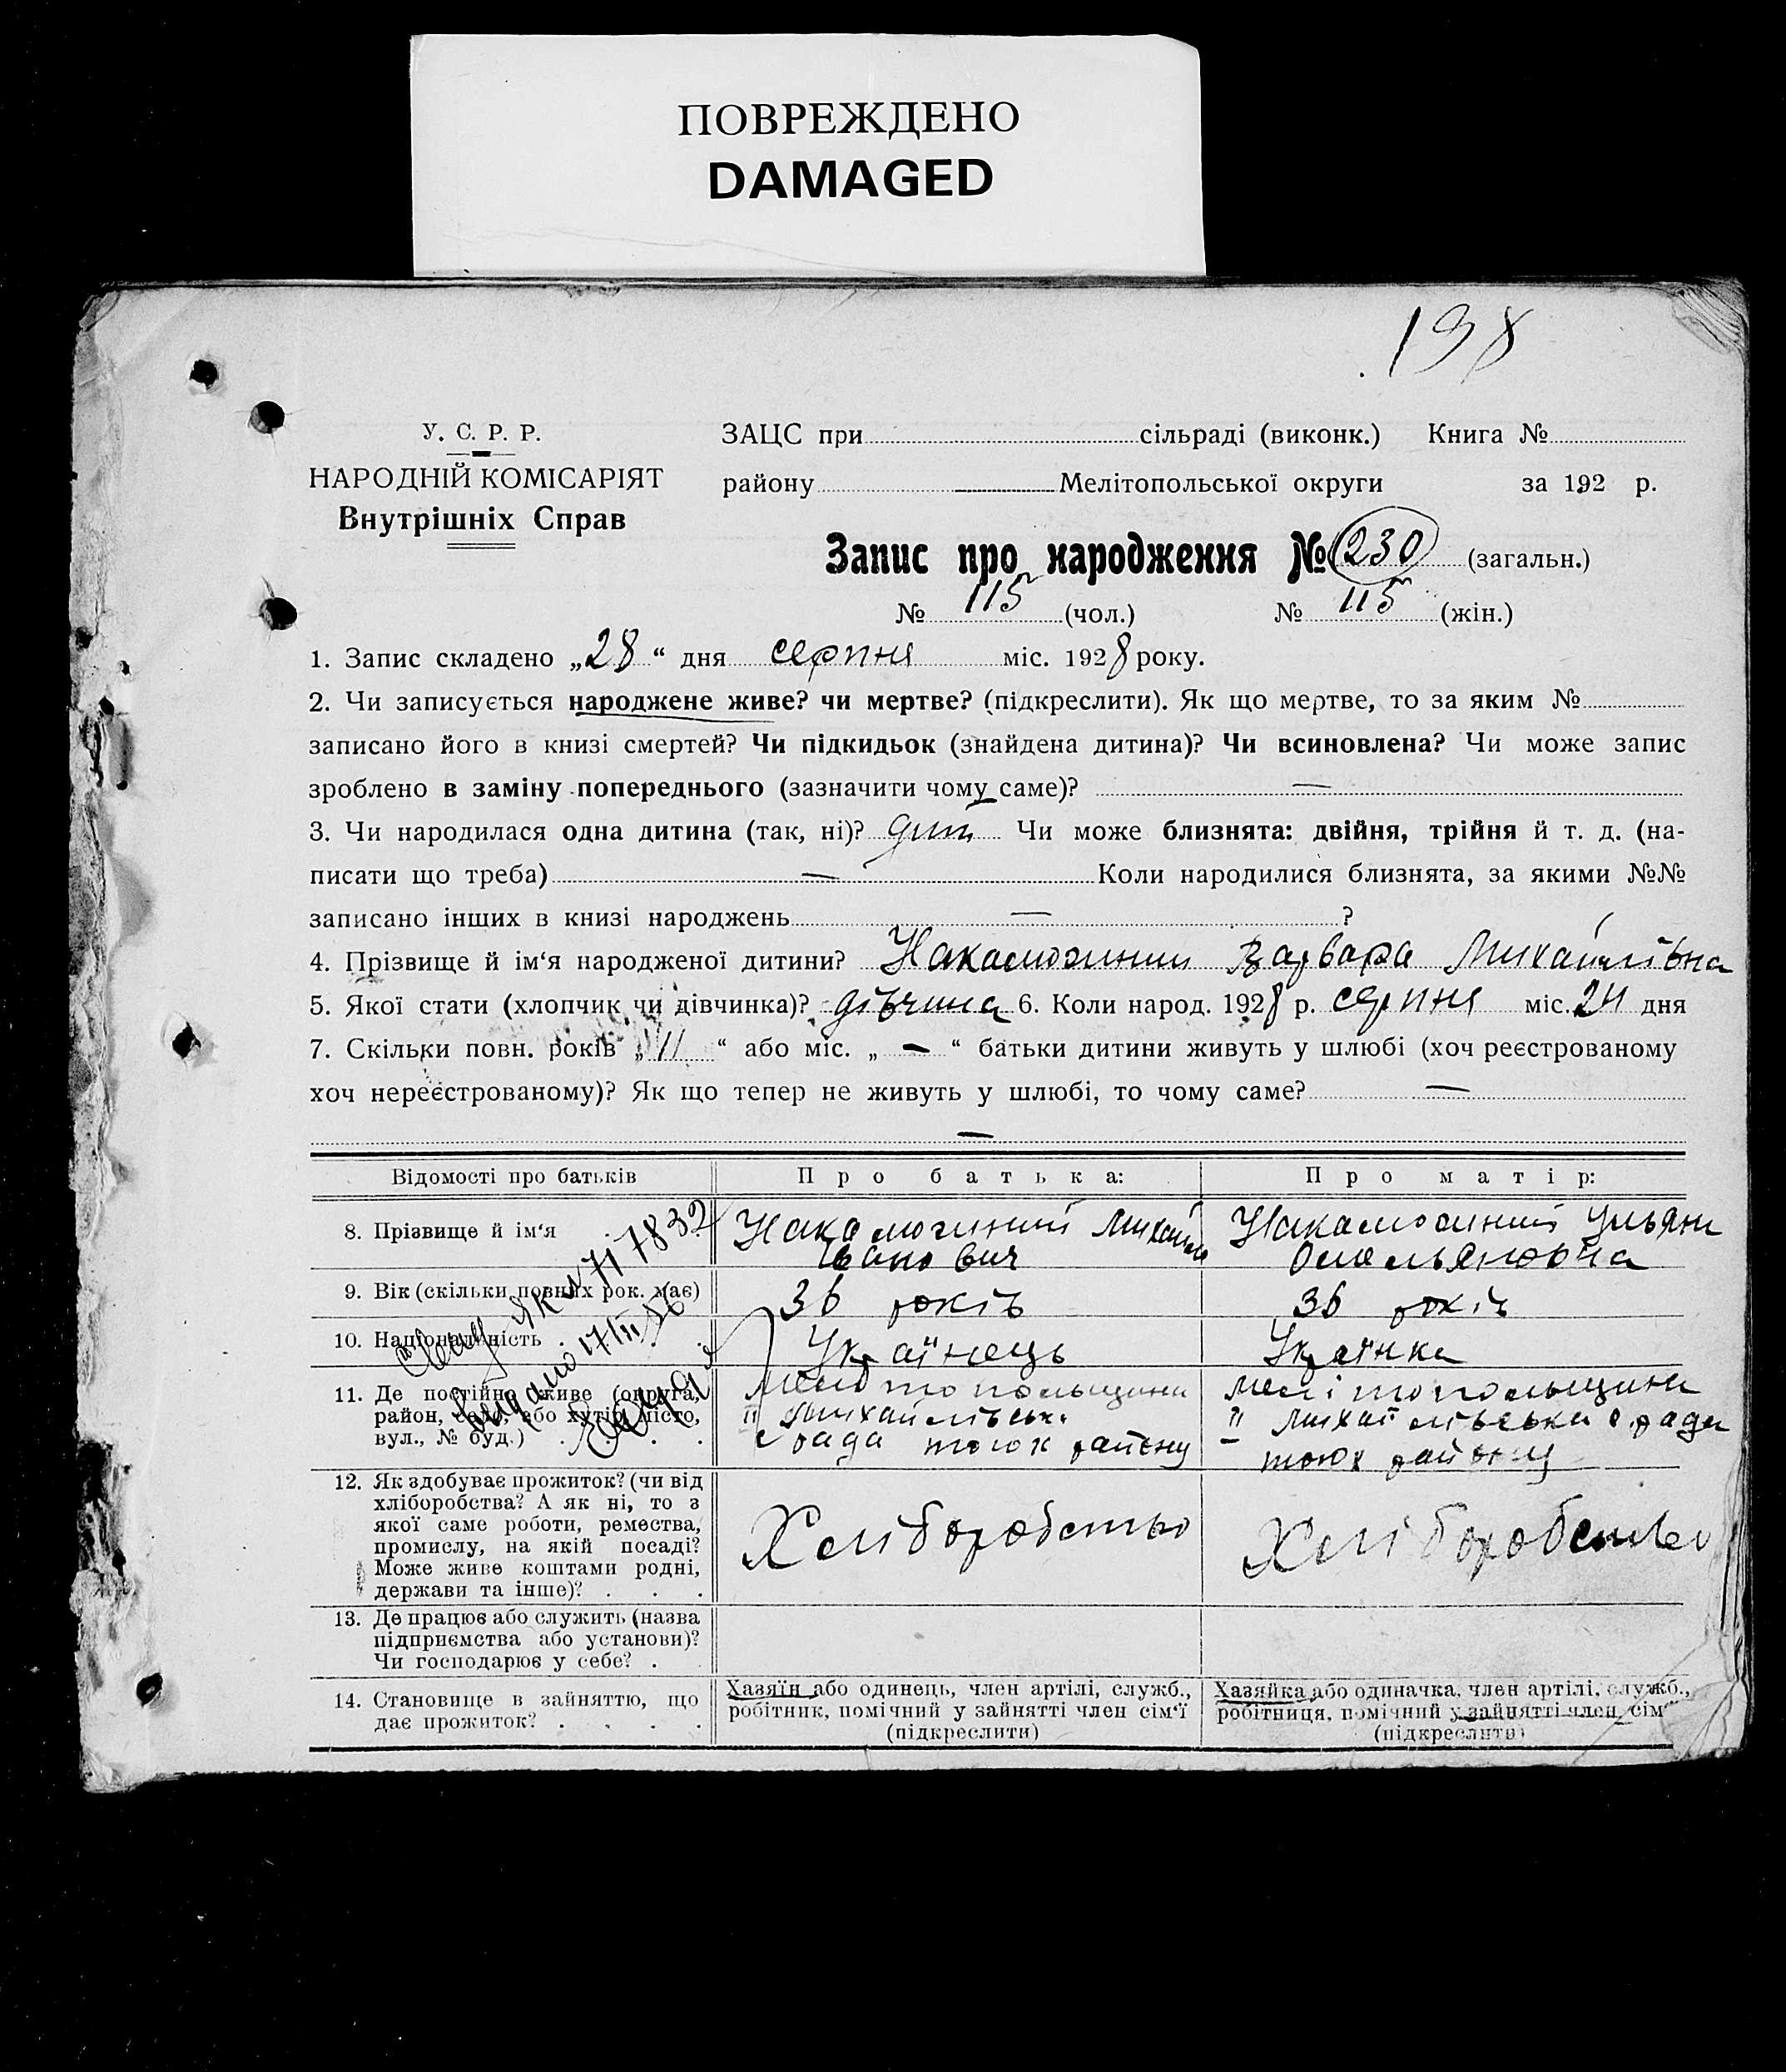 ПОВРЕЖДЕНО
DAMAGED
198
У. С. Р. Р.
НАРОДНІЙ КОМІСАРІЯТ
Внутрішніх Справ
ЗАЦС при сільраді (виконк.) Книга №
району Мелітопольської округи за 192 р.
Запис про народження № 230 (загальн.)
№ 115 (чол.) № 115 (жін.)
1. Запис складено „28“ дня серпня міс. 1928 року.
2. Чи записується народжене живе? чи мертве? (підкреслити). Як що мертве, то за яким №
записано його в книзі смертей? Чи підкидьок (знайдена дитина)? Чи всиновлена? Чи може запис
зроблено в заміну попереднього (зазначити чому саме)? —
3. Чи народилася одна дитина (так, ні)? Чи може близнята: двійня, трійня й т. д. (на-
писати що треба) — Коли народилися близнята, за якими №№
записано інших в книзі народжень — ?
4. Прізвище й ім‘я народженої дитини? Варвара Михайлівна
5. Якої стати (хлопчик чи дівчинка)? дівчина 6. Коли народ. 1928 р. серпня міс. дня
7. Скільки повн. років „11“ або міс. „—“ батьки дитини живуть у шлюбі (хоч реєстрованому
хоч нереєстрованому)? Як що тепер не живуть у шлюбі, то чому саме? —
—
Відомості про батьків Про батька: Про матір:
8. Прізвище й ім‘я Михайло
Іванович
Ульяни
Омельяновна
9. Вік (скільки повних рок. має) 36 років 36 років
10. Національність Українець Українка
11. Де постійно живе (округа,
район, село, або хутір, місто,
вул., № буд.)
Мелітопольщини
II Михайлівськ.
с рада тогож району
Мелітопольщини
II Михайлівська с. рада
тогож району
12. Як здобуває прожиток? (чи від
хліборобства? А як ні, то з
якої саме роботи, ремества,
промислу, на якій посаді?
Може живе коштами родні,
держави та інше)?
Хліборобство
Хліборобство
13. Де працює або служить (назва
підприємства або установи)?
Чи господарює у себе?
14. Становище в зайняттю, що
дає прожиток?
Хазяїн або одинець, член артілі, служб.,
робітник, помічний у зайнятті член сім‘ї
(підкреслити)
Хазяйка або одиначка, член артілі, служб.,
робітниця, помічний у зайнятті член сім‘ї
(підкреслити)